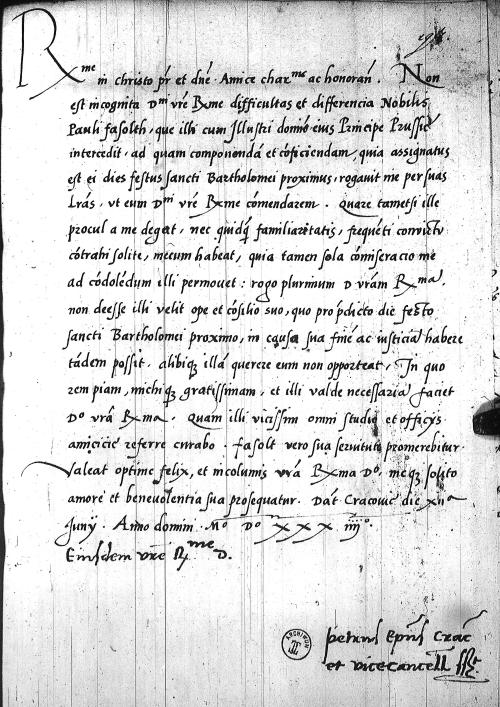 Rme in christo pr et dne Amice charme ac honoran. Non
est incognita Dni vre Rme difficultas et differencia Nobilis
Pauli fasolth, que illi cum Illustri domino eius Principe Prussie
intercedit, ad quam componendā et cōficiendam, quia assignatus
est ei dies festus sancti Bartholomei proximus, rogavit me per suas
Lrās, ut eum Dni vre Rme cōmendarem. Quare tametsi ille
procul a me degat, nec quidq̄ familiaritatis, frequēti convictu
cōtrahi solite, mecum habeat, quia tamen sola cōmiseracio me
ad cōdolēdum illi permovet: rogo plurimum D vrām Rma.
non deesse illi velit ope et cōsilio suo, quo pro p̄dicto die festo
sancti Bartholomei proximo, in causa sua finē ac iusticiā habere
tādem possit, alibiq; illā querere eum non opporteat, In quo
rem piam, michiq; gratissimam, et illi valde necessariā faciet
Do vrā Rma. Quam illi vicissim omni studio et officijs
amicicie referre curabo. Fasolt vero sua servitute promerebitur
Valeat optime felix, et incolumis vrā Rma Do, meq; solito
amore et benevolentia sua prosequatur. Dat Cracovie die xiia
Junij. Anno domini Mo Do xxx iiijo.
Eiusdem vre Rme D.
petrus Epus Crac
et vicecancell
ARCHIWUM